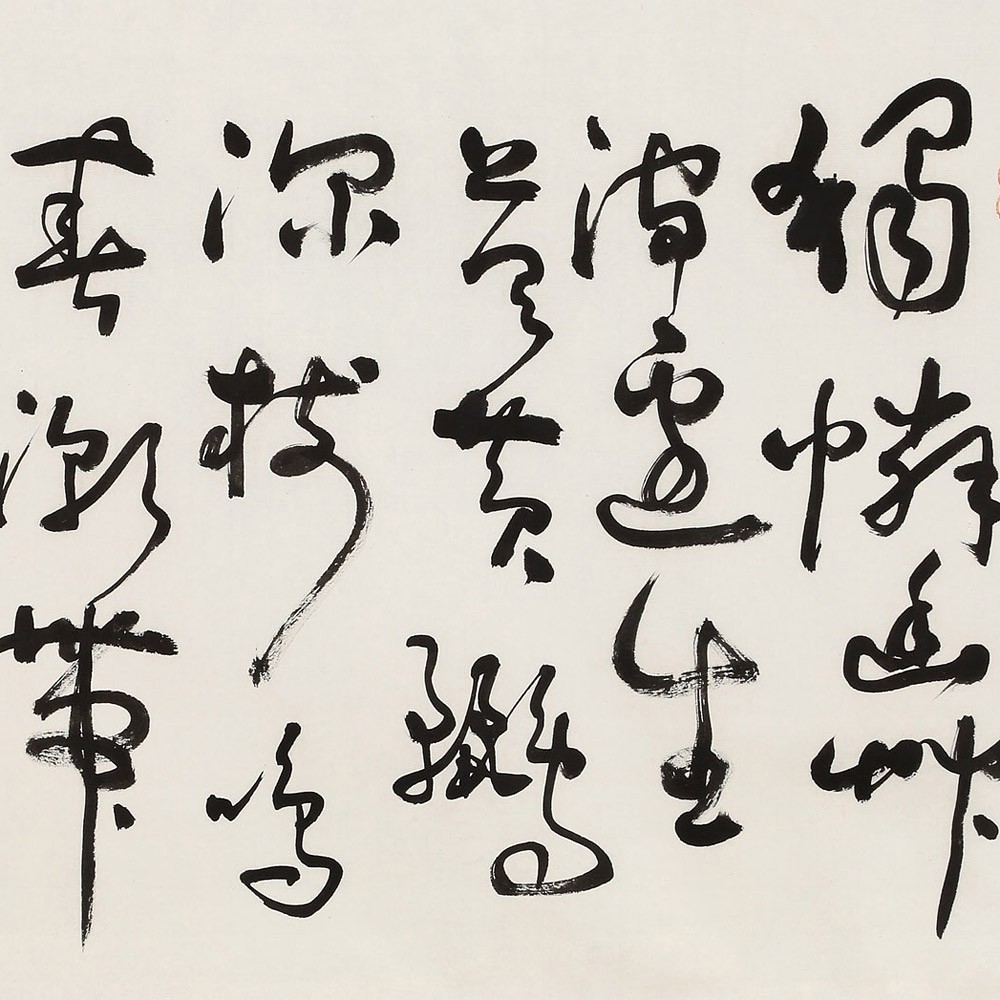 獨憐幽艸
澗邊生
上有黃鸝
深樹鳴
春潮帶